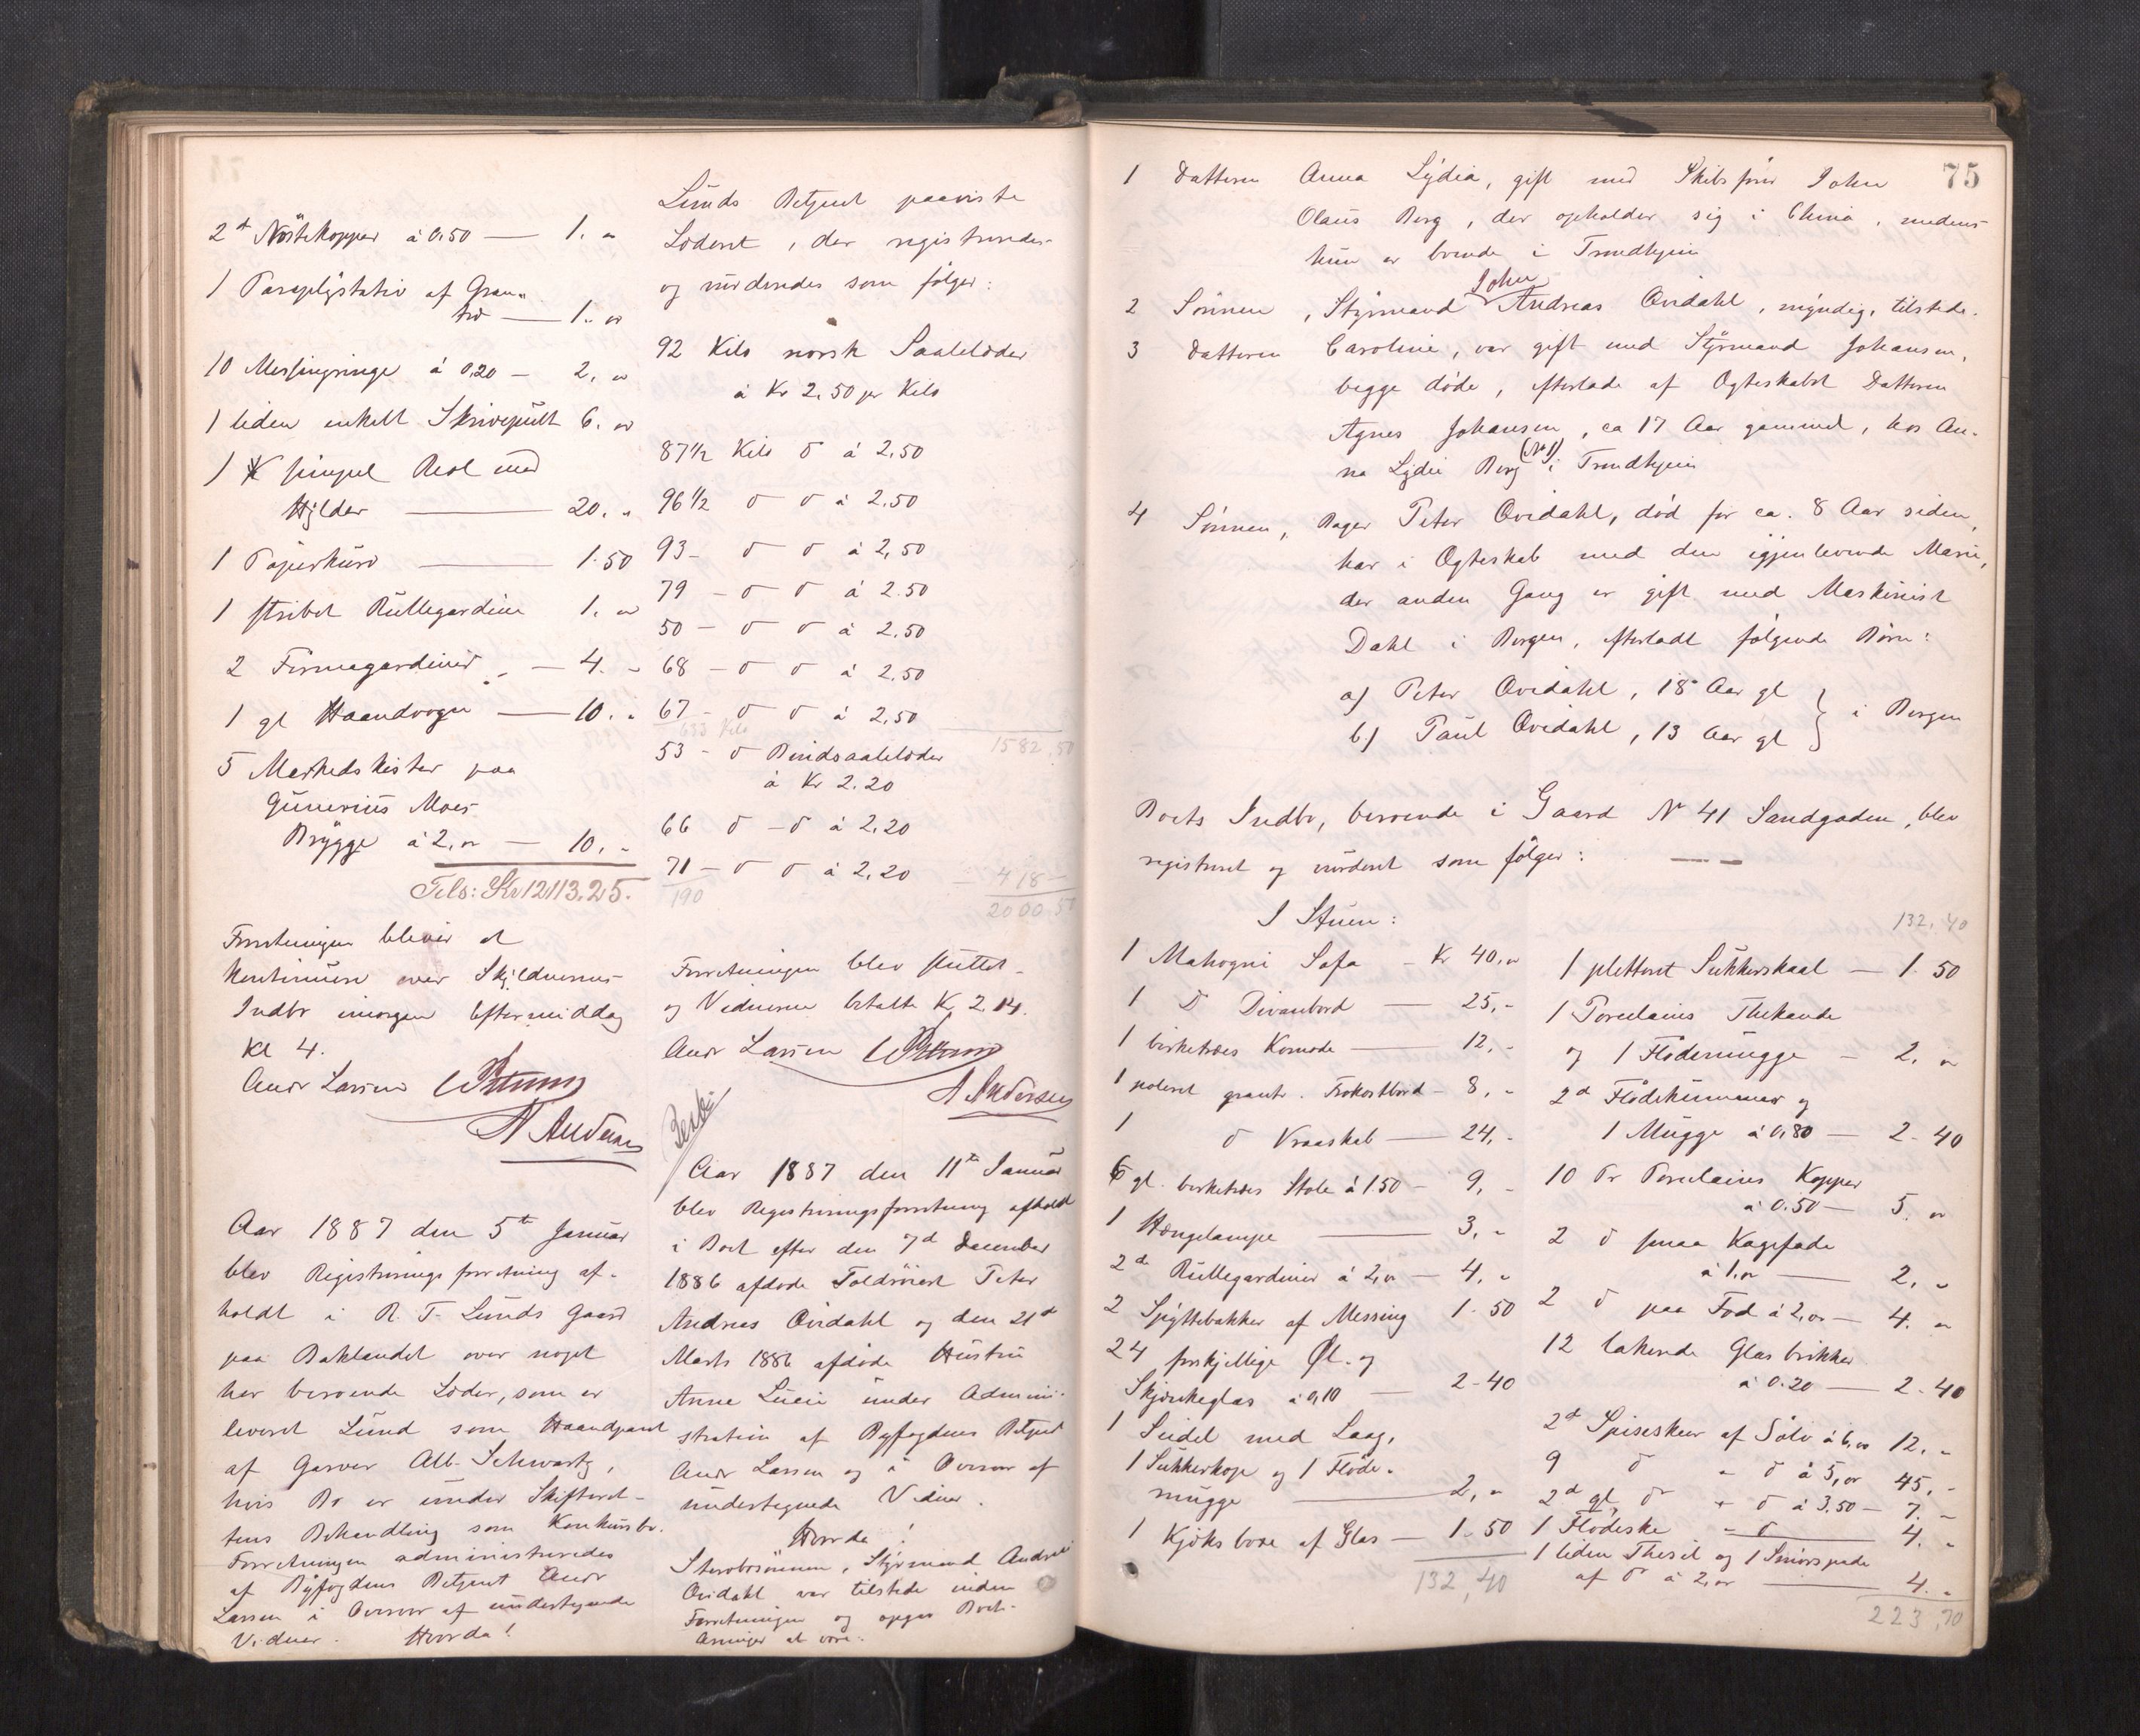 2d Nöstekopper à 0.50 — 1. "
1 Paraplystativ af Gran-
træ — 1. "
10 Messingringe à 0,20 — 2, "
1 liden enkelt Skrivepult 6. "
1 simpel Reol med
Hylder — 20. "
1 Papirkurv — 1.50
1 stribet Rullegardine 1. "
2 Firmagardiner — 4. "
1 gl Haandvogn — 10. "
5 Markedskister paa
Gunerius Moes
Brygge à 2, " — 10, "
Tils: Kr 12113.25.
Forretningen bliver at
kontinuere over Skyldnerens
Indbo imorgen Eftermiddag
Kl 4.
Andr Larsen
A Andersen
Aar 1887 den 5te Januar
blev Registrerings forretning af-
holdt i R. F. Lunds Gaard
paa Baklandet over noget
her beroende Læder, som er
leveret Lund som Haandpant
af Garver Alb. Schwartz,
hvis Bo er under Skifteret-
tens Behandling som Konkursbo.
Forretningen administreredes
af Byfogdens Betjent Andr
Larsen i Overvær af undertegnede
Vidner. Hvorda!
Lunds Betjent paaviste
Læderet, der registreredes
og vurderedes som følger:
92 Kilo norsk Saalelæder
à Kr 2.50 pr Kilo
87 1/2 Kilo d à 2.50
96 1/2 d d à 2.50
93 - d d à 2,50
79 - d d à 2.50
50 - d d à 2.50
68 - d d à 2.50
67 - d d à 2,50
633 Kilo 1582,50
53 - d Bindsaalelæder
à Kr 2.20
66 d - d à 2.20
71 - d d à 2,20
190 418 -
2000,50
Forretningen blev sluttet
og Vidnerne betalte Kr 2.14.
Andr Larsen
A Andersen
Aar 1887 den 11te Januar
blev Registreringsforretning afholdt
i Boet efter den 7d December
1886 afdøde Toldrorer Peter
Andreas Ovidahl og den 21d
Marts 1886 afdøde Hustru
Anne Lucie under Admini-
stration af Byfogdens Betjent
Andr Larsen og i Overvær af
undertegnede Vidner.
Hvorda!
Stervbosønnen, Styrmand Andreas
Ovidahl var tilstede under
Forretningen og opgav Boets
Arvinger at være:
75
1 Datteren Anna Lydia, gift med Skibsfører John
Olaus Berg, der opholder sig i China, medens
hun er boende i Trondhjem
2 Sønnen, Styrmand John Andreas Ovidahl, myndig, tilstede.
3 Datteren Caroline, var gift med Styrmand Johansen,
begge døde, efterlade af Ægteskabet Datteren
Agnes Johansen, ca 17 Aar gammel, hos An-
na Lydia Berg (No 1) i Trondhjem
4 Sønnen, Bager Peter Ovidahl, død for ca. 8 Aar siden,
har i Ægteskab med den igjenlevende Marie,
der anden Gang er gift med Maskinist
Dahl i Bergen, efterladt følgende Børn:
a) Peter Ovidahl, 18 Aar gl
b) Paul Ovidahl, 13 Aar gl } i Bergen
Boets Indbo, beroende i Gaard No 41 Sandgaden, blev
registreret og vurderet som følger:
I Stuen:
1 Mahogni Sofa - Kr 40, "
1 D Divanbord — 25, "
1 birketræes Komode — 12, "
1 poleret grantr. Frokostbord - 8, "
1 d Vraaskab — 24, "
6 gl. birketræes Stole à 1.50 - 9, "
1 Hængelampe — 3, "
2de Rullegardiner à 2, " — 4, "
2 Spyttebakker af Messing 1.50
24 forskjellige Øl- og
Skjænkeglas à 0,10 — 2-40
1 Seidel med Laag,
1 Sukkerkop og 1 Fløde-
mugge — 2, "
1 Kjøks bore af Glas — 1-50
132,40
132,40
1 pletteret Sukkerskaal — 1.50
1 Porcelæins Thekande
og 1 Flødemugge — 2. "
2d Flødekummer og
1 Mugge à 0,80 — 2-40
10 Pr Porcelæins Kopper
à 0.50 — 5. "
2 d smaa Kagefade
à 1, " — 2. "
2 d paa Fod à 2, " — 4. "
12 lakerede Glas brikker
à 0.20 — 2-40
2d Spiseskeer af Sølv à 6, " 12. "
9 d " d à 5, " 45. "
2d gl. d " d à 3.50 - 7. "
1 Flødeske " d — 4. "
1 liden Thesil og 1 Smørspade
af d à 2, " — 4. "
223,70